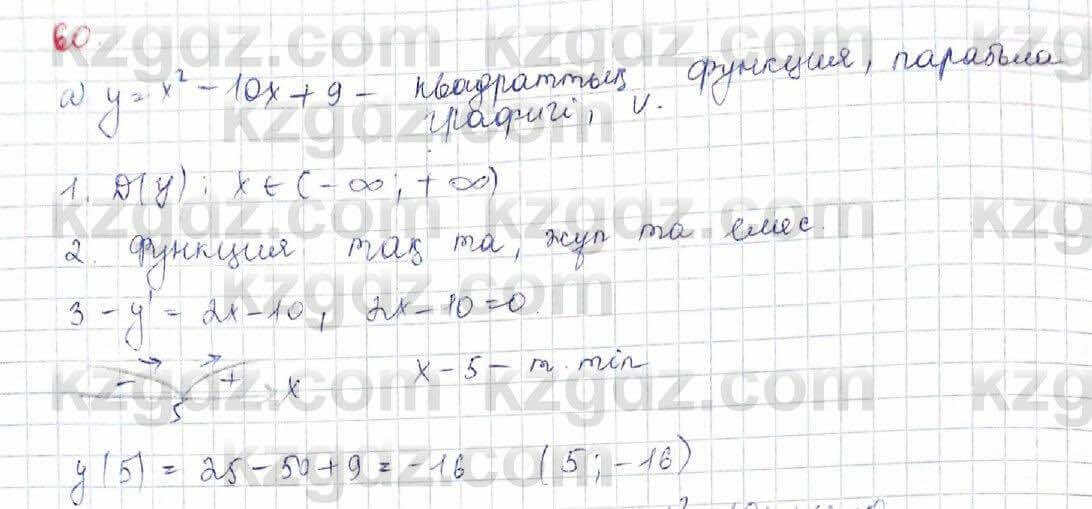 60.
а) y = x² - 10x + 9 - квадраттық функция, парабола
графигі, v.
1. D(y): x ∈ (-∞; +∞)
2. Функция тақ та, жұп та емес.
3 - y' = 2x - 10, 2x - 10 = 0.
- + x
5
x - 5 - т. min
y(5) = 25 - 50 + 9 = -16 (5; -16)
kzgdz.com